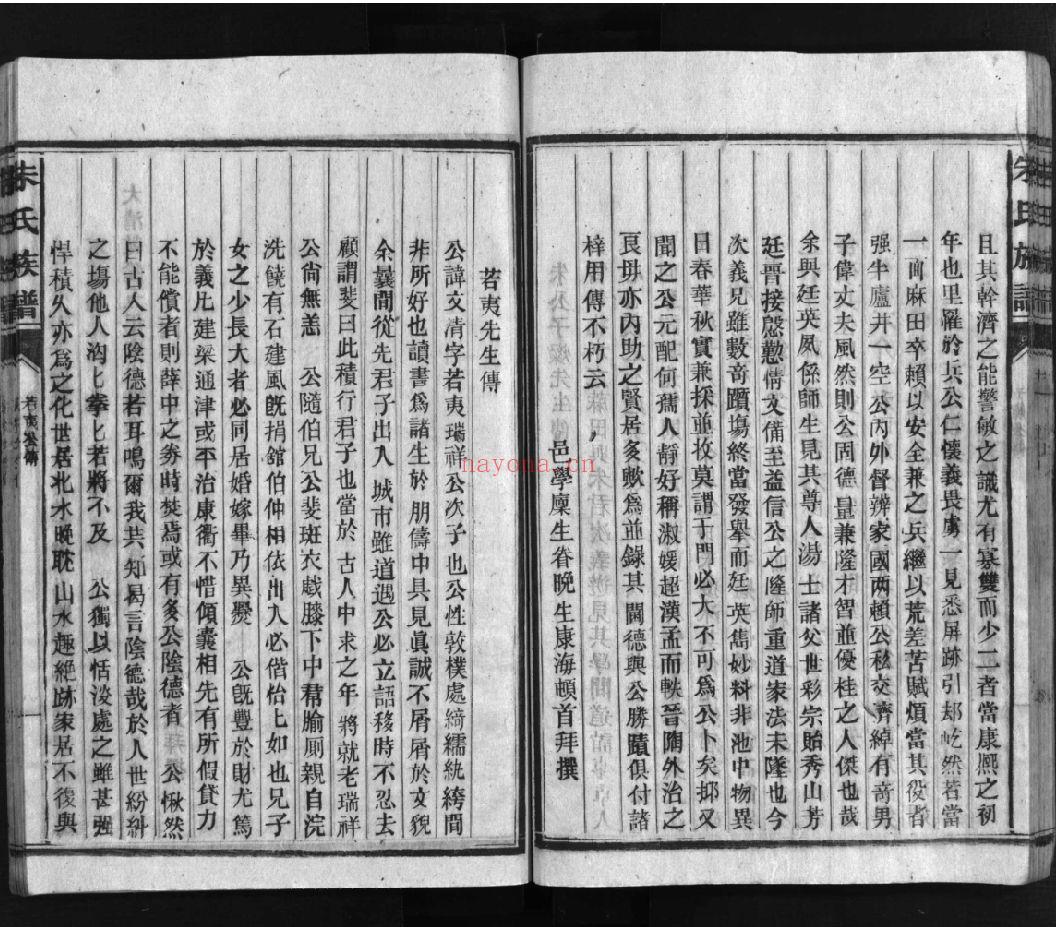 朱氏族譜
且其幹濟之能警敏之識尤有寡雙而少二者當康熙之初
年也里罹於兵公仁懷義畏虜一見悉屏跡引却屹然若當
一面麻田卒賴以安全兼之兵繼以荒差苦賦煩當其役者
强半廬井一空公內外督辦家國兩頓公私交濟綽有奇男
子偉丈夫風然則公固德量兼隆才智並優桂之人傑也哉
余與廷英夙係師生見其尊人湯士諸父世彩宗貽秀山芳
廷晉接慇懃情文備至益信公之隆師重道家法未墜也今
次義兄雖數奇躓塲終當發舉而廷英雋妙料非池中物異
日春華秋實兼採並收莫謂于門必大不可爲公卜矣抑又
聞之公元配何孺人靜好稱淑媛超漢孟而軼晉陶外治之
良毋亦內助之賢居多歟爲並錄其閫德與公勝蹟俱付諸
梓用傳不朽云
邑學廩生眷晚生康海頓首拜撰
若夷先生傳
公諱文清字若夷瑞祥公次子也公性敦樸處綺繻紈綺間
非所好也讀書爲諸生於朋儔中具見眞誠不屑屑於文貌
余曩間從先君子出入城市雖道遇公必立語移時不忍去
顧謂斐曰此積行君子也當於古人中求之年將就老瑞祥
公尙無恙　公隨伯兄公斐斑衣戲膝下中帬腧厠親自浣
洗饒有石建風旣捐館伯仲相依出入必偕怡怡如也兄子
女之少長大者必同居婚嫁畢乃異爨　公旣豐於財尤篤
於義凡建梁通津或平治康衢不惜傾囊相先有所假貸力
不能償者則薛中之券時焚焉或有多公陰德者　公愀然
曰古人云陰德若耳鳴爾我共知易言陰德哉於人世紛糾
之塲他人洶匕拳匕若將不及　公獨以恬淡處之雖甚强
悍積久亦爲之化世居北水晚耽山水趣絶跡家居不復與
朱氏族譜
若夷公傳
nayona.cn